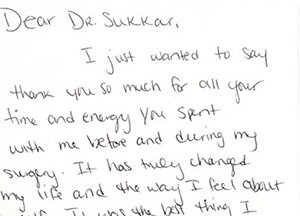 Dear Dr. Sukkar,
I just wanted to say
thank you so much for all your
time and energy you spent
with me before and during my
surgery. It has truly changed
my life and the way I feel about
It was the best thing I